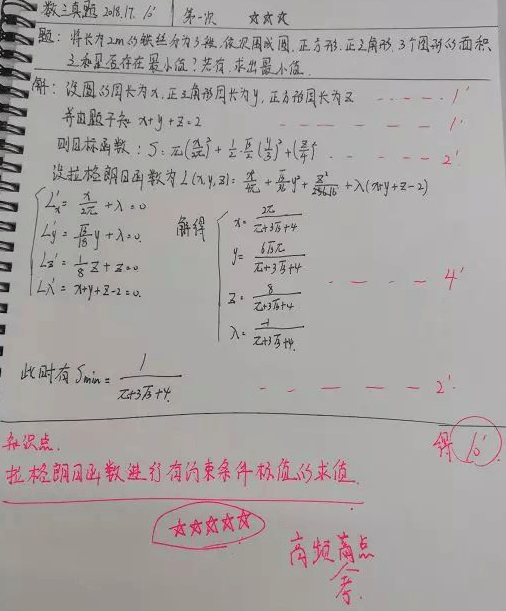 数三真题 2018.17. 10' 第一次 ☆☆☆
题: 将长为2m的铁丝分为3段,依次围成圆、正方形、正三角形,3个图形的面积
之和是否存在最小值?若有,求出最小值.
解: 设圆的周长为x,正三角形周长为y,正方形周长为z ---- 1'
并由题子知 x+y+z=2 ---- 1'
则目标函数: S=π(x/2π)²+1/2·√3/2(y/3)²+(z/4)² ---- 2'
设拉格朗日函数为L(x,y,z)=x²/4π+√3/36 y²+ +λ(x+y+z-2)
Lx'=x/2π+λ=0
Ly'=√3/18 y+λ=0.
Lz'=1/8 z+z=0
Lλ'=x+y+z-2=0.
解得
x=2π/(π+3√3+4)
y=6√3π/(π+3√3+4)
z=8/(π+3√3+4)
λ=-1/(π+3√3+4).
---- 4'
此时有Smin=1/(π+3√3+4). ---- 2'
得 10'
知识点.
拉格朗日函数进行有约束条件标值的求值.
☆☆☆☆☆
高频高点
考.